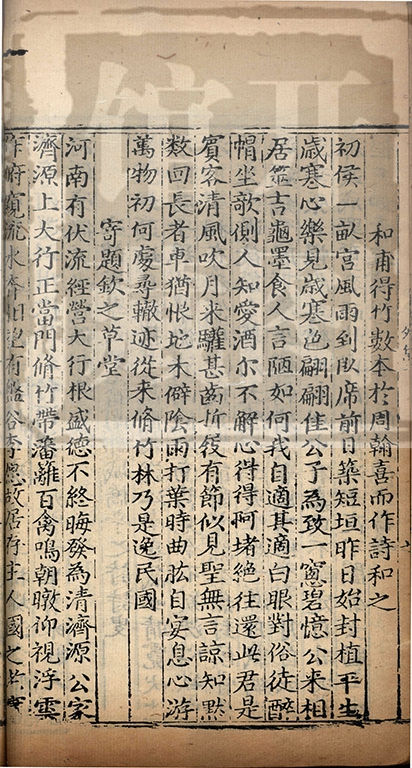 和甫得竹數本於周翰喜而作詩和之
初侯一畝宮風雨到臥席前日築短垣昨日始封植平生
歲寒心樂見歲寒色翩翩佳公子為致一窻碧憶公来相
居筮吉龜墨食人言陋如何我自適其適白眼對俗徒醉
帽坐欹側人知愛酒尔不解心得阿堵絕往還此君是
賓客清風吹月来驩甚齒折屐有節似見聖無言諒知默
數回長者車猶恨地木僻陰雨打葉時曲肱自宴息心游
萬物初何處尋轍迹從来脩竹林乃是逸民國
寄題欽之草堂
河南有伏流經營大行根盛德不終晦發為清濟源公家
濟源上大行正當門脩竹帶藩離百禽鳴朝暾仰視浮雲
作俯窺流水奔有盤谷李愿故居存主人國之老